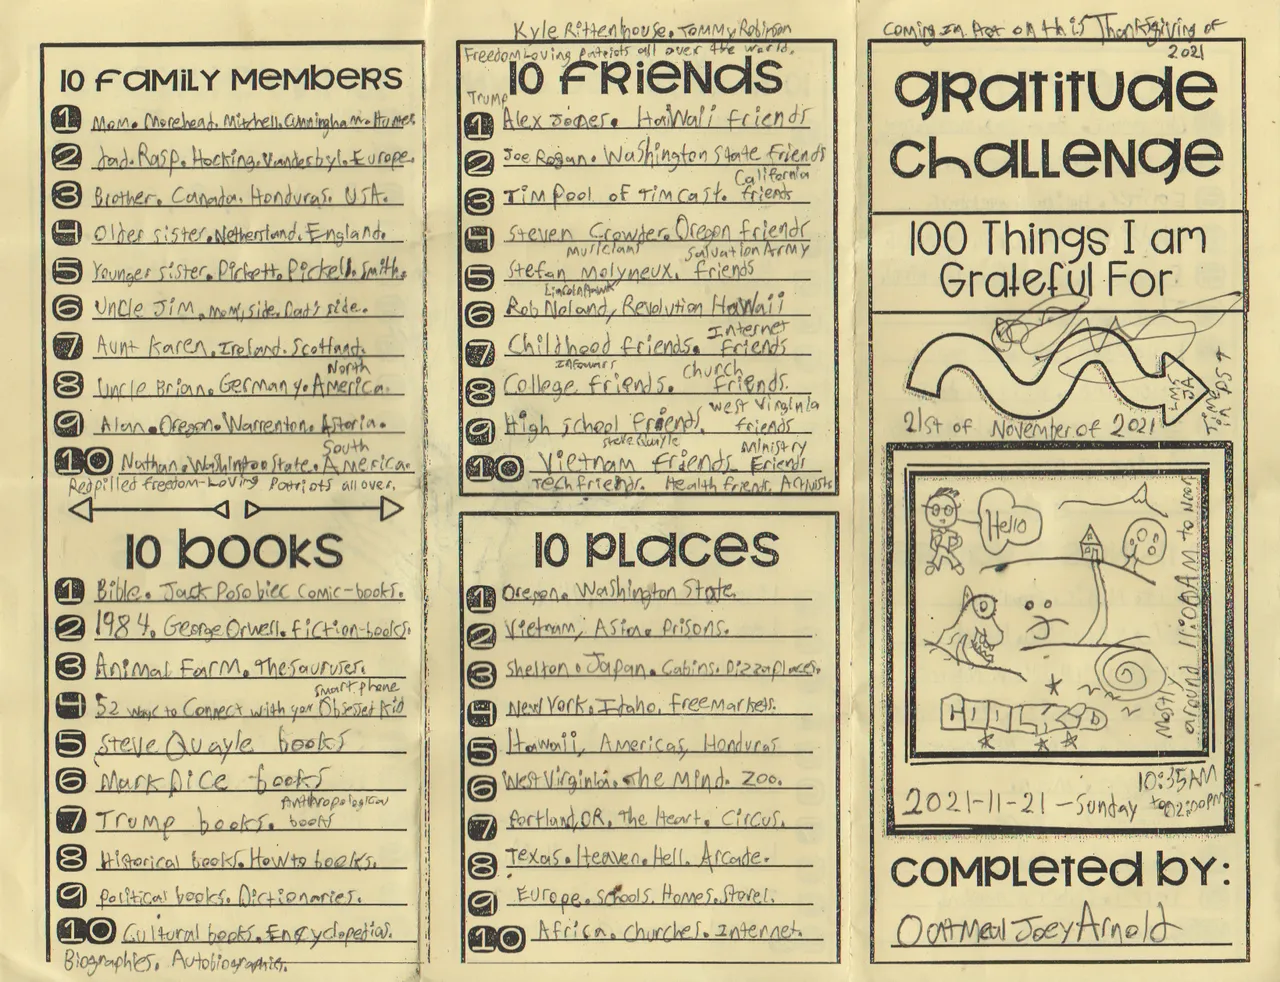 10 Family Members
1 Mom. Morehead. Mitchell. Cunningham. Humes
2 Dad. Rasp. Hocking. Vanderbyl. Europe.
3 Brother. Canada. Honduras. USA.
4 Older sister. Netherland. England.
5 Younger sister. Pickett. Pickell. Smith.
6 Uncle Jim. mom's side. Dad's side.
7 Aunt Karen. Ireland. Scotland.
North
8 Uncle Brian. Germany. America.
9 Alan. Oregon. Warrenton. Astoria.
South
10 Nathan. Washington State. America.
Redpilled freedom-Loving Patriots all over.
10 Books
1 Bible. Jack Posobiec Comic-books.
2 1984. George Orwell. fiction-books.
3 Animal Farm. Thesauruses.
smart phone
4 52 ways to Connect with your Obsessed Kid
5 Steve Quayle books
6 Mark Dice books
Anthropological
7 Trump books. books
8 Historical books. How to books.
9 Political books. Dictionaries.
10 Cultural books. Encyclopedias.
Biographies. Autobiographies.
Kyle Rittenhouse. Tommy Robinson
Freedom Loving Patriots all over the world.
10 Friends
Trump
1 Alex Jones. Haiwaii friends
2 Joe Rogan. Washington State Friends
California
3 Tim Pool of Timcast. friends
4 Steven Crowder. Oregon friends
musicians Salvation Army
5 Stefan Molyneux. friends
6 Rob Noland, Revolution Hawaii
Internet
7 Childhood friends. friends
Infowars church
8 College friends. friends.
West Virginia
9 High school friends. friends
Steve Quayle ministry
10 Vietnam friends Friends
Tech friends. Health friends. Activists
10 Places
1 Oregon. Washington State.
2 Vietnam, Asia. Prisons.
3 Shelton. Japan. Cabins. Pizza places.
4 New York. Idaho. Free Markets.
5 Hawaii, Americas, Honduras
6 West Virginia. The Mind. Zoo.
7 Portland, OR. The Heart. Circus.
8 Texas. Heaven. Hell. Arcade.
9 Europe. Schools. Homes.
10 Africa. Churches. Internet.
Coming In Hot on this Thanksgiving of
2021
Gratitude
Challenge
100 Things I am
Grateful For
21st of November of 2021
Hello
Mostly
around 11:00AM to Noon
COOL KID
10:35AM
2021-11-21 - Sunday to 02:00PM
Completed by:
Oatmeal Joey Arnold